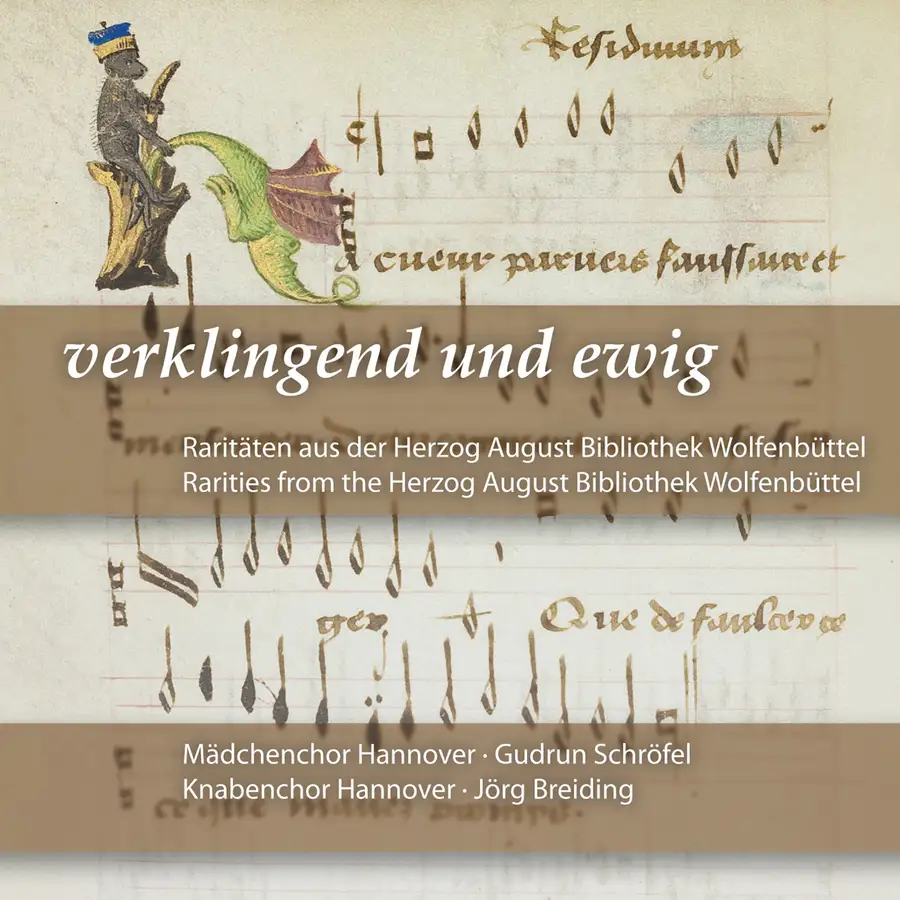 Residuum
a cueur
verklingend und ewig
Raritäten aus der Herzog August Bibliothek Wolfenbüttel
Rarities from the Herzog August Bibliothek Wolfenbüttel
ger Que de
Mädchenchor Hannover · Gudrun Schröfel
Knabenchor Hannover · Jörg Breiding